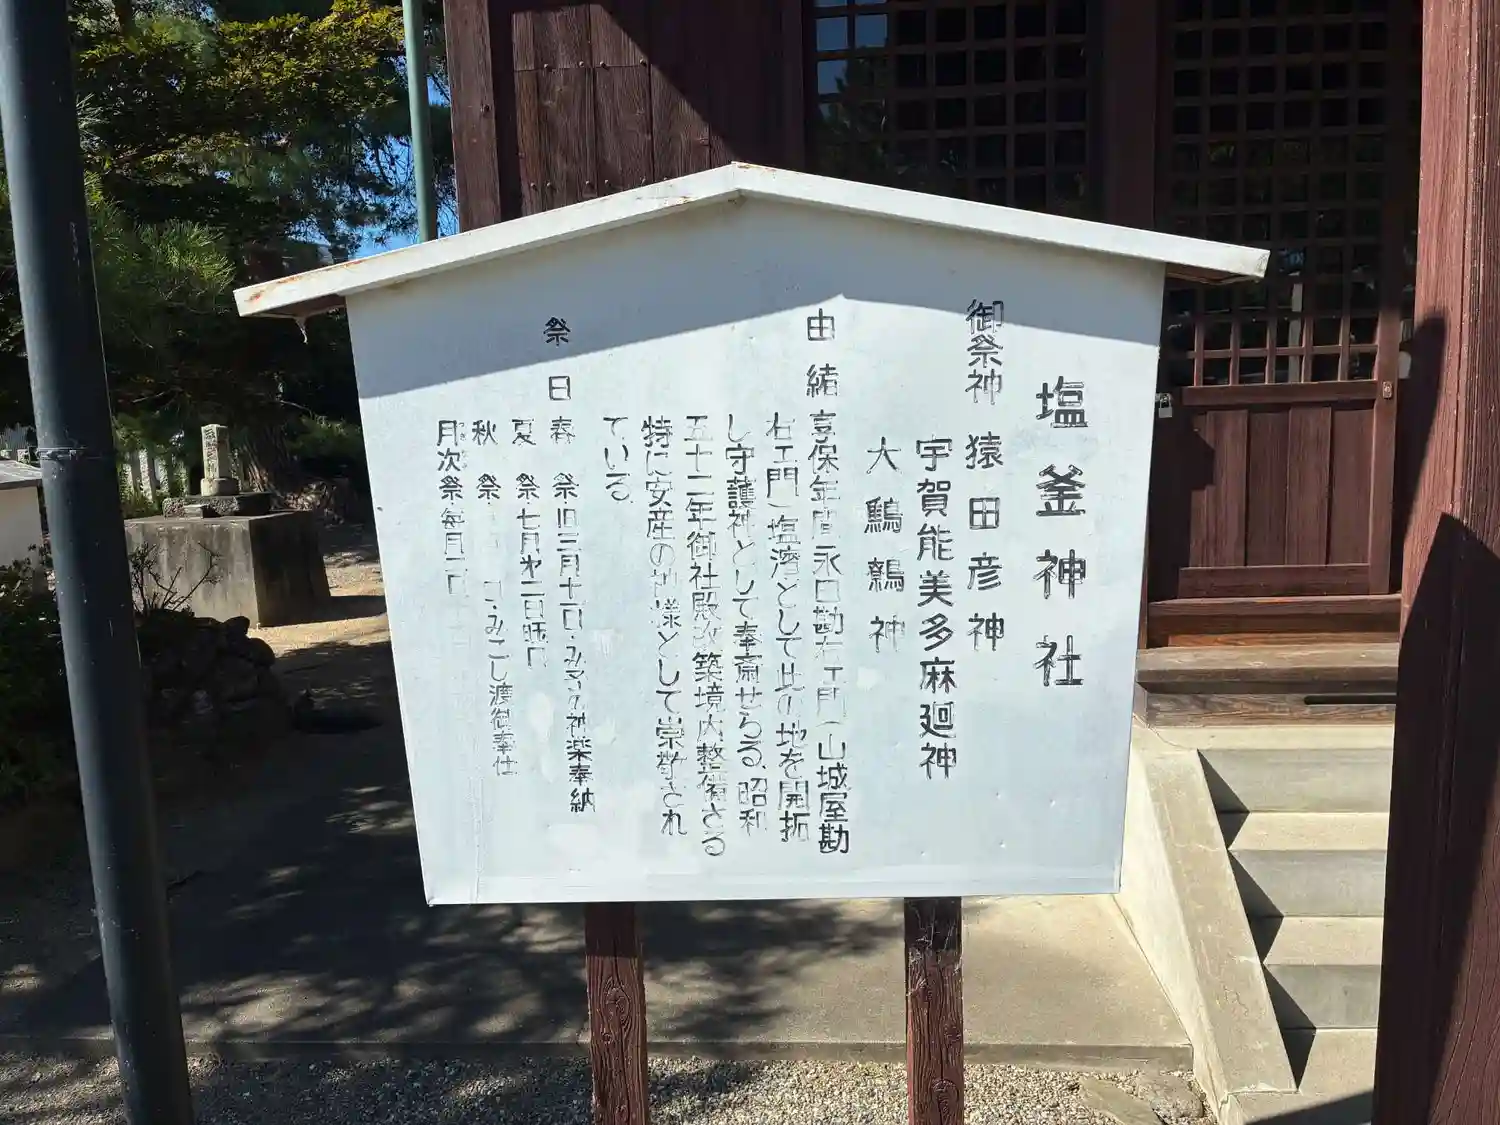 塩釜神社
御祭神 猿田彦神
宇賀能美多麻廻神
大鷦鷯神
由緒 享保年間永田勘右エ門(山城屋勘
右エ門)塩濱として此の地を開拓
し守護神として奉斎せらる、昭和
五十二年御社殿改築境内整備さる
特に安産の神様として崇敬され
ている
祭日 春 祭・旧三月十日・みその神楽奉納
夏 祭・七月第二日曜日
秋 祭・ 日・みこし渡御奉仕
月次祭・毎月一日